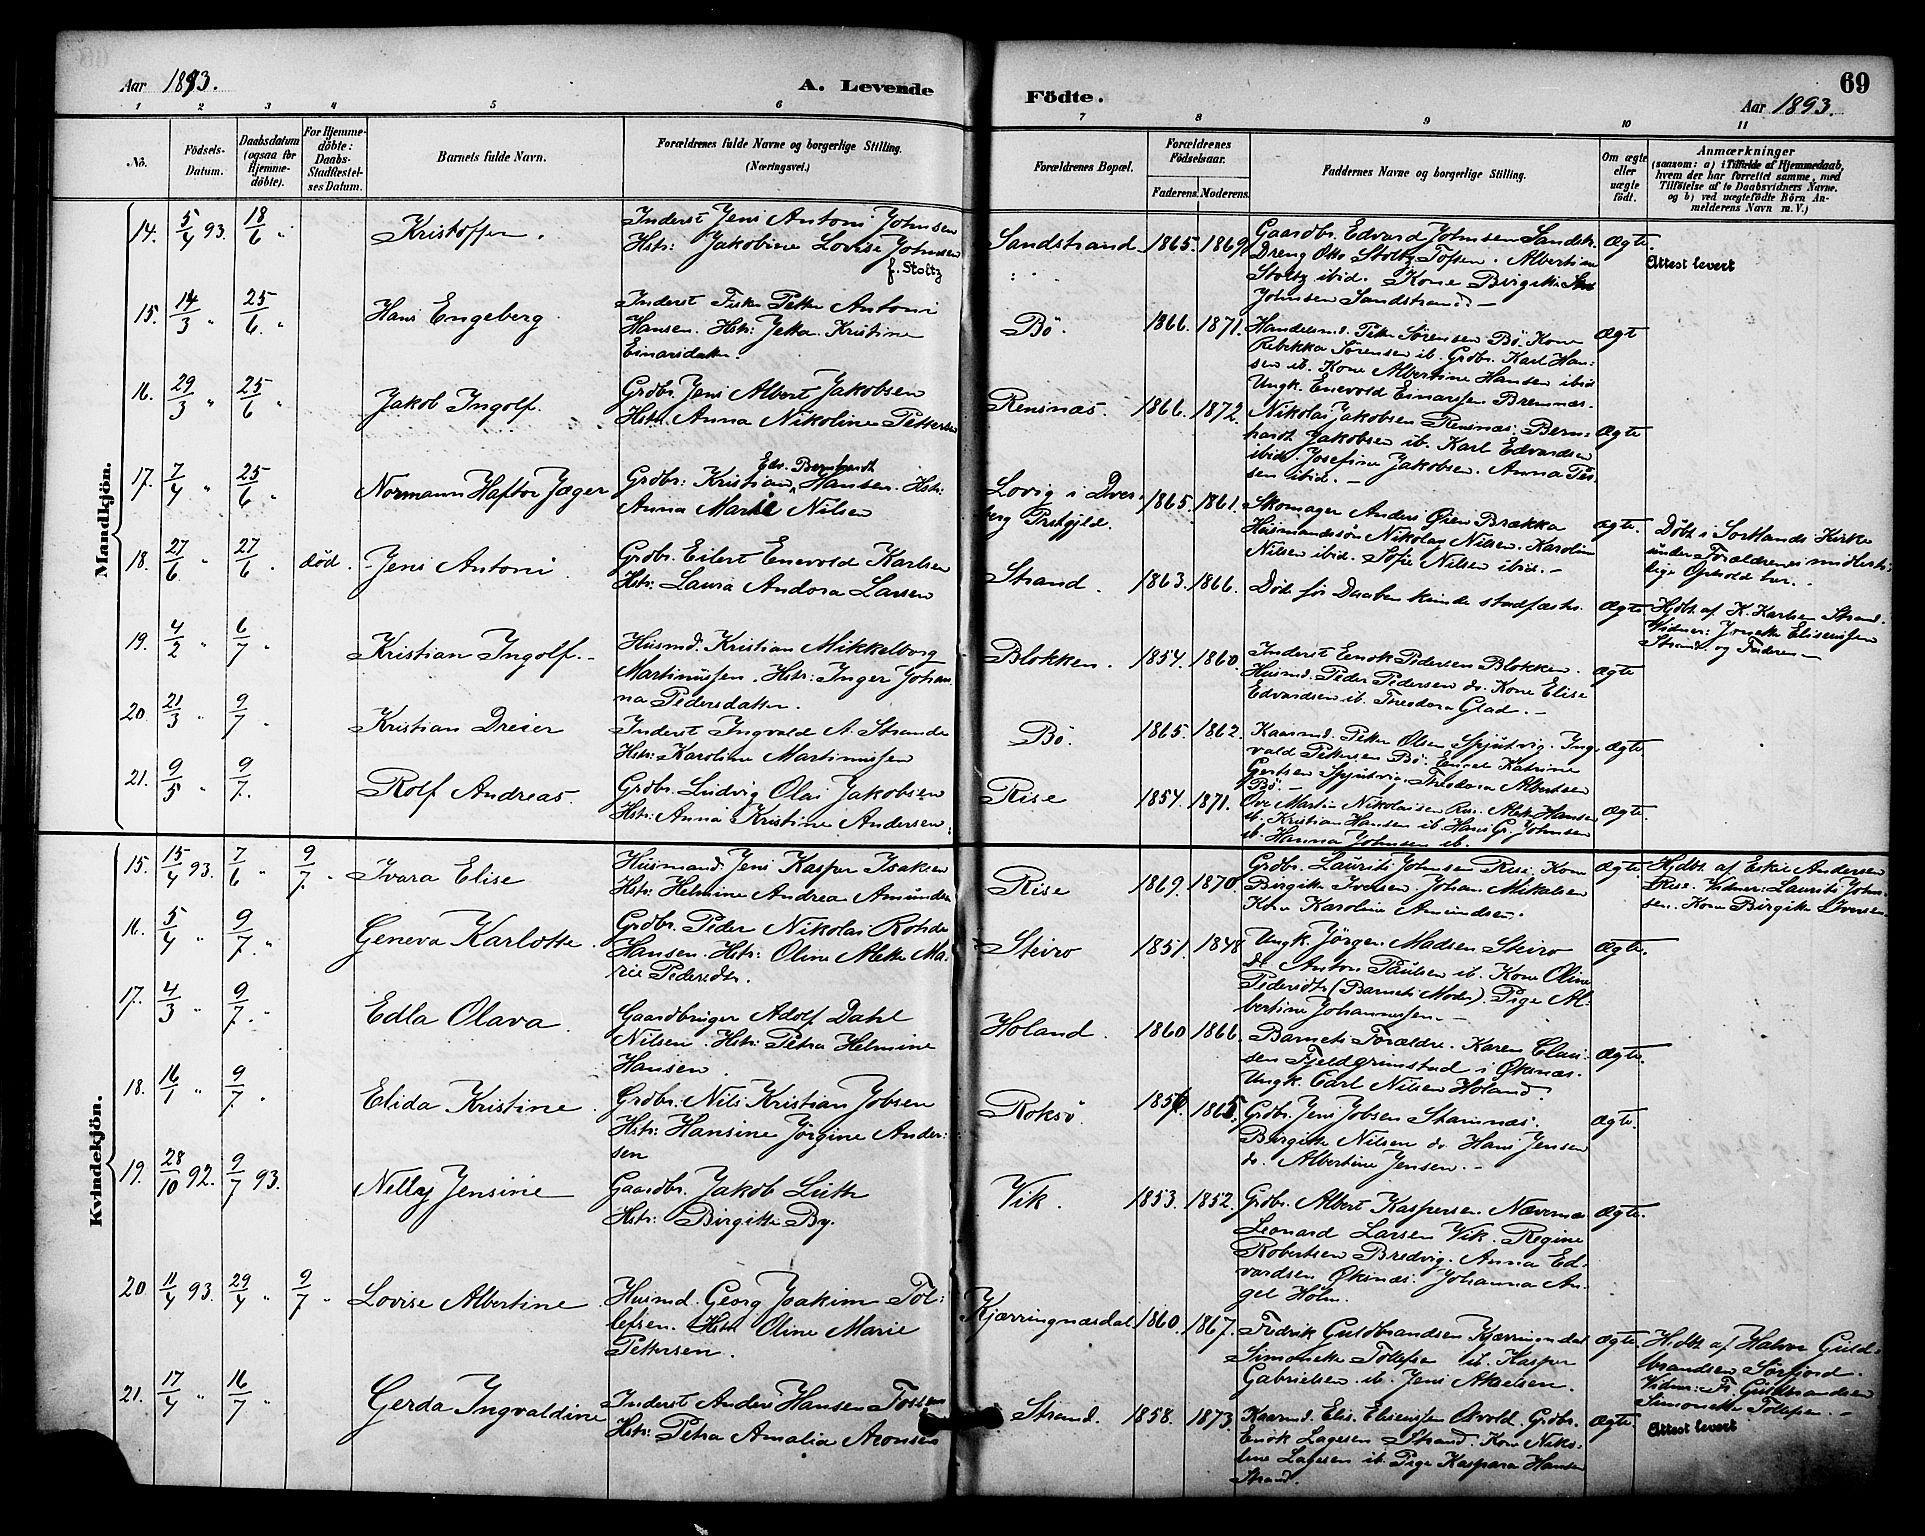 Aar 1893.
A. Levende
Födte.
69
Aar 1893.
1 2 3 4 5 6 7 8 9 10 11
No.
Födsels-
Datum.
Daabsdatum
(ogsaa for
Hjemme-
döbte).
For Hjemme-
döbte:
Daabs-
Stadfæstel-
ses Datum.
Barnets fulde Navn.
Forældrenes fulde Navne og borgerlige Stilling.
(Næringsvei.)
Forældrenes Bopæl.
Forældrenes
Födselsaar.
Faderens. Moderens.
Faddernes Navne og borgerlige Stilling.
Om ægte
eller
uægte
födt.
Anmærkninger
(saasom: a) i Tilfælde af Hjemmedaab,
hvem der har forrettet samme, med
Tilföielse af to Daabsvidners Navne.
og b) ved uægtefödte Börn An-
melderens Navn m. V.)
Mandkjön.
14. 5/4 93. 18/6 "
Kristoffer.
Inderst Jens Antoni Johnsen
Hstr: Jakobine Lovise Johnsen
f. Stoltz
Sandstrand. 1865. 1869.
Gaardbr. Edvard Johnsen Sandstr.
Dreng Otto Stoltz Tofsen. Albertine
Stoltz ibid. Kone Birgitte
Johnsen Sandstrand. —
Ægte.
Attest levert
15. 14/3 " 25/6. "
Hans Engeberg.
Inderst Fisker Petter Antoni
Hansen. Hstr: Jetta Kristine
Einarsdatter.
Bö. 1866. 1871.
Handelsmd. Peter Sörensen Bö. Kone
Rebekka Sörensen ib. Grdbr. Karl Han-
sen ib. Kone Albertine Hansen ibid
Ungk. Enevold Einarsen Bremnæs.
Ægte
16. 29/3 " 25/6 "
Jakob Ingolf.
Grdbr. Jens Albert Jakobsen
Hstr. Anna Nikoline Pettersen
Rensnæs. 1866. 1872.
Nikolai Jakobsen Rensnæs. Bern-
hardt Jakobsen ib. Karl Edvardsen
ibid. Josefine Jakobsen. Anna
sen ibid. —
Ægte
17. 7/4 " 25/6 "
Normann Haftor Jæger
Edv. Bernhardt
Grdbr: Kristian Hansen. Hstr:
Anna Marie Nilsen
Lovig i Dver-
berg Prstgjld. 1865. 1861.
Skomager Anders Öien Brækka
Husmandssön Nikolay Nilsen. Karoline
Nilsen ibid. Sofie Nilsen ibid. —
ægte.
Döbt i Sortlands Kirke
under Forældrenes midlerti-
dige Ophold her. —
18. 27/6 " 27/6 " död.
Jens Antoni.
Grdbr. Eilert Enevold Karlsen
Hstr: Laura Andora Larsen
Strand. 1863. 1866.
Döde för Daaben kunde stadfæstes.
Ægte.
Hjdbt. af K. Karlsen Strand.
Vidner: Jonette Eliseussen
Strand og Faderen —
19. 4/2 " 6/7 "
Kristian Ingolf. —
Husmd. Kristian Mikkelborg
Martinussen. Hstr: Inger Johan-
na Pedersdatter.
Blokken. 1854. 1860.
Inderst Enok Pedersen Blokken.
Husmd. Peder Pedersen do. Kone Elise
Edvardsen ib. Theodora Glad. —
Ægte
20. 21/3 " 9/7 "
Kristian Dreier
Inderst Ingvald A. Strande
Hstr: Karoline Martinussen
Bö. 1865. 1862.
Kaarmd. Peter Olsen Spjutvig. Ing-
vald Pettersen Bö. Enke Katrine
Gertsen Spjutvig. Theodora Albertsen
Bö. —
Ægte.
21. 9/5 " 9/7.
Rolf Andreas.
Grdbr. Ludvig Olai Jakobsen
Hstr: Anna Kristine Andersen.
Rise 1854. 1871.
Ove Martin Nikolaisen Rise. Hansen
ib. Kristian Hansen ib. Hans Gr. Johnsen
ib. Hanna Johnsen ib.
Ægte.
Kvindekjön.
15. 15/4 93. 7/6 " 9/7. "
Ivara Elise
Husmand. Jens Kasper Isaksen
Hstr: Helmine Andrea Amunds
Rise 1869. 1870.
Grdbr. Laurits Johnsen Rise. Kone
Birgitte Iversen. Johan Mikalsen
Kone Karoline Amundsen.
Ægte.
Hjdbt. af Eskil Andersen
Rise. Vidner: Laurits John-
sen. Kone Birgitte Iversen.
16. 5/4 " 9/7. "
Geneva Karlotte.
Grdbr. Peder Nikolai Rohde
Hansen. Hstr: Oline Mette Ma-
rie Pedersdtr.
Steiro 1851. 1848.
Ungk. Jörgen Madsen Steiro
do Anton Paulsen ib. Kone Oline
Pedersdtr (Barnets Moder). Pige Al-
bertine Johannessen. —
Ægte.
17. 4/3 " 9/7. "
Edla Olava.
Gaardbruger Adolf Dahl
Nilsen. Hstr: Petra Helmine
Hansen.
Holand. 1860 1866.
Barnets Forældre. Karen Clau-
sen Fjeldgrimstad i Öksnæs.
Ungk. Carl Nilsen Holand.
Ægte.
18. 16/1 " 9/7. "
Elida Kristine.
Grdbr. Nils Kristian Jobsen
Hstr: Hansine Jörgine Ander-
sen
Roksö. 1865.
Grdbr. Jens Jobsen Stamnæs.
Birgitte Nilsen do. Hans Jensen
do. Albertine Jensen. —
Ægte.
19. 28/10 92. 9/7 93.
Nelly Jensine
Gaardbr. Jakob Lüth
Hstr: Birgitte By.
Vik. 1853. 1852.
Grdbr. Albert Kaspersen Nævernæs
Leonard Larsen Vik. Regine
Robertsen Bredvig. Anna Ed-
vardsen Öksnæs. Johanna An-
gel Holm.
Ægte.
20 11/4 93. 29/4 " 9/7 "
Lovise Albertine.
Husmd. Georg Joakim Tol-
lefsen. Hstr. Oline Marie
Pettersen.
Kjærringnæsdal 1860. 1867.
Fredrik Guldbrandsen Kjærringnæsdal
Simonette Tollefsen ib. Kasper
Gabrielsen ib. Jens Akselsen.
Ægte.
Hjdbt. af Halvor Guld-
brandsen Sörfjord.
Vidner: Fr. Guldbrandsen
Simonette Tollefsen. —
21. 17/4 " 16/7 "
Gerda Ingvaldine
Inderst Anders Hansen Fossen
Hstr: Petra Amalia Aronsen
Strand. 1858. 1873.
Kaarmd. Elis. Eliseussen Osvold. Grdbr.
Enok Lagesen Strand. Kone Niko-
line Lagesen ib. Pige Kaspara Hansen
Strand.
Ægte.
Attest levert